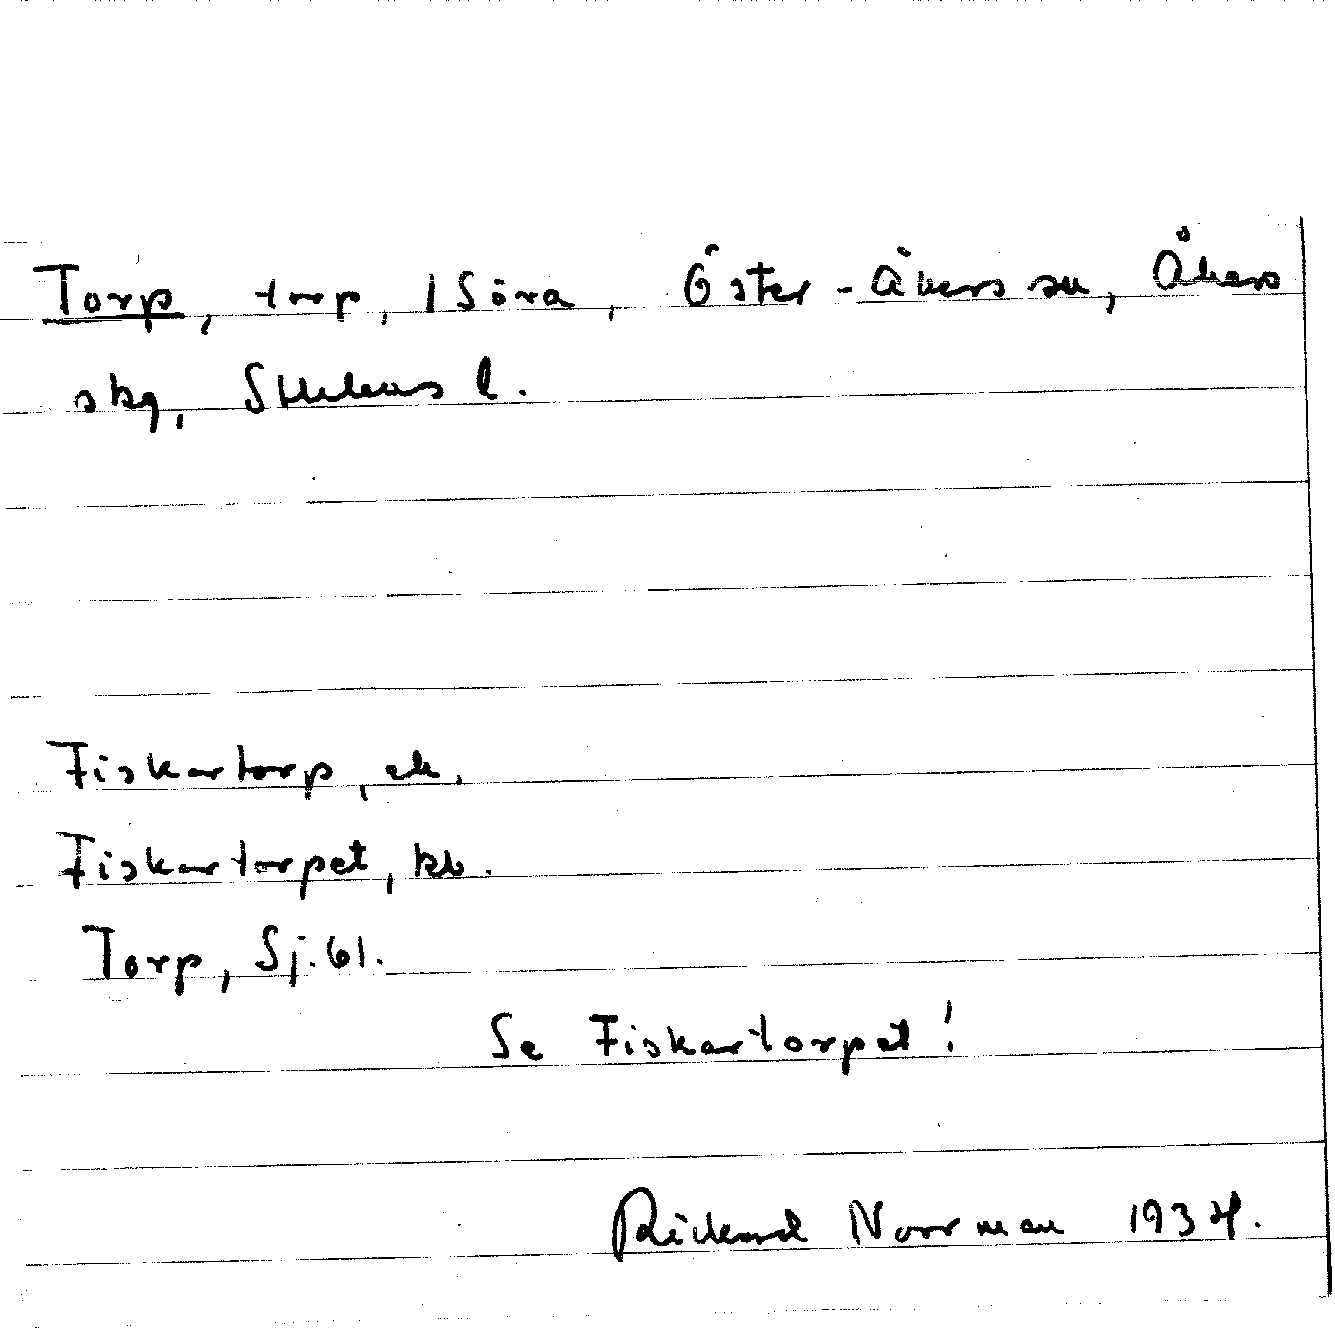 Torp, torp, 1 Söra, Öster-Åkers sn, Åkers
skg, Sthlms l.
Fiskartorp, ek.
Fiskartorpet, kb.
Torp, Sj. 61.
Se Fiskartorpet!
Rickard Norrman 1934.